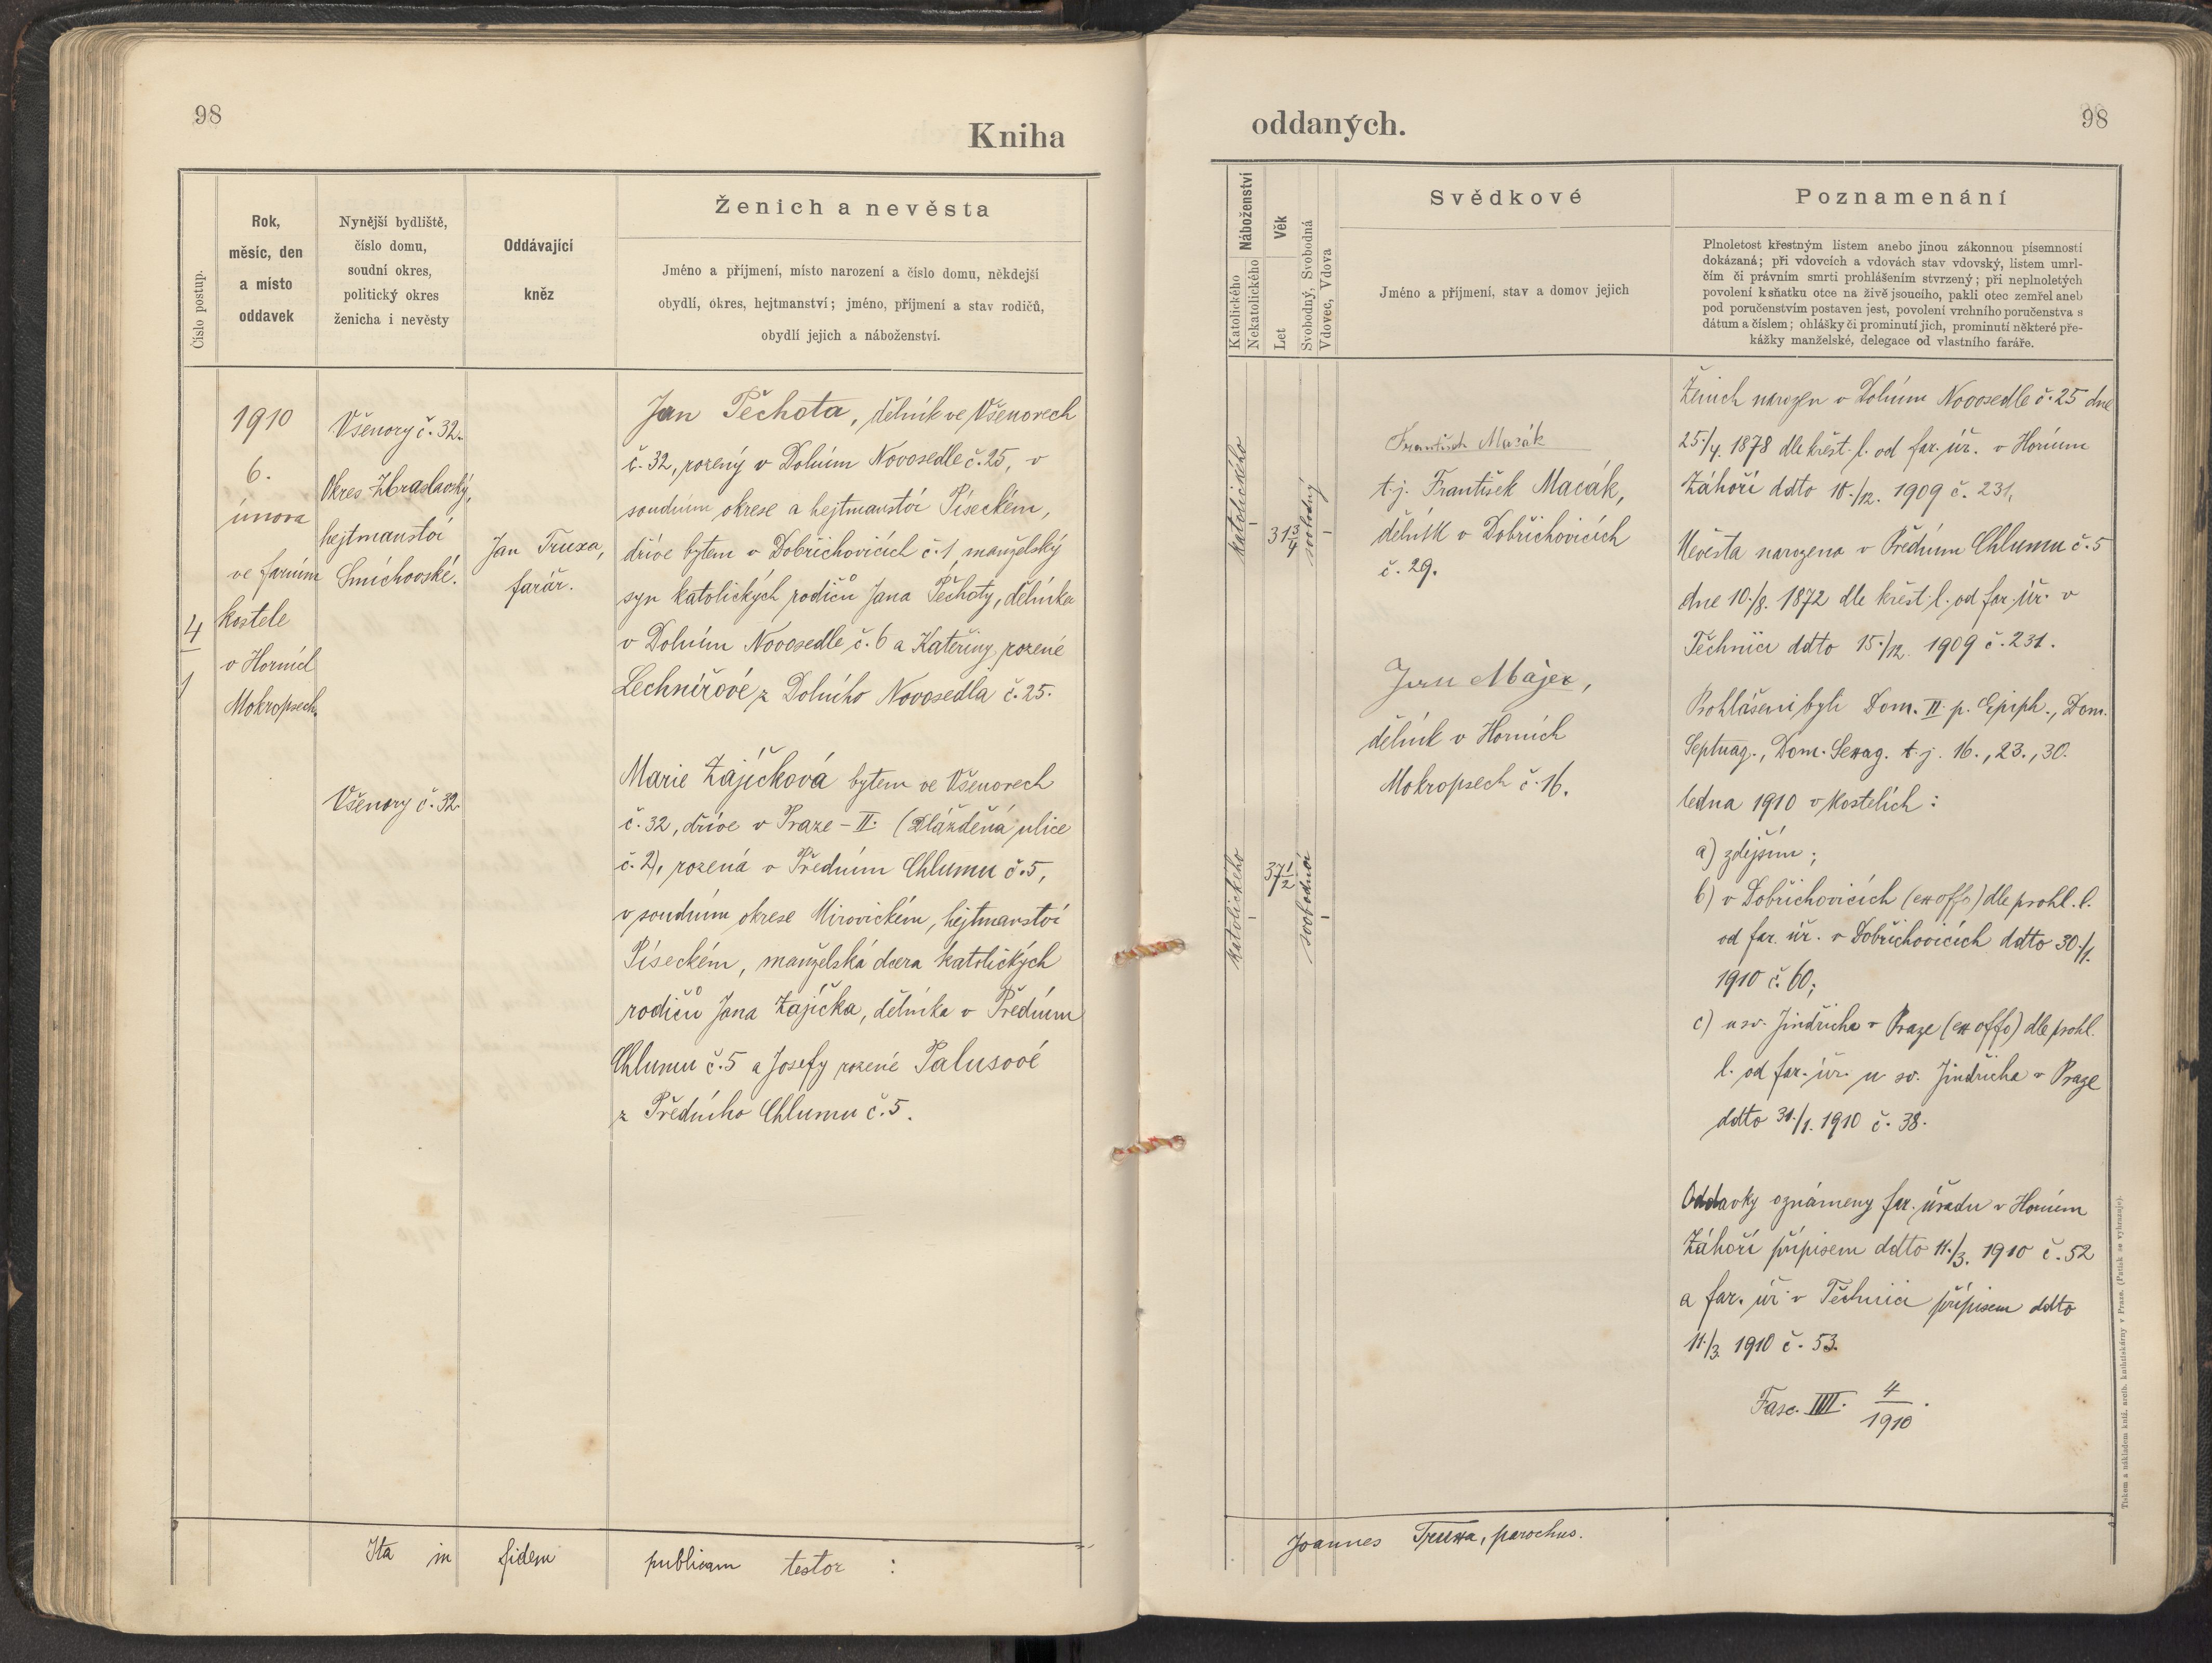 98
Kniha
Číslo postup.
Rok,
měsíc, den
a místo
oddavek
Nynější bydliště,
číslo domu,
soudní okres,
politický okres
ženicha i nevěsty
Oddávající
kněz
Ženich a nevěsta
Jméno a příjmení, místo narození a číslo domu, někdejší
obydlí, okres, hejtmanství; jméno, příjmení a stav rodičů,
obydlí jejich a náboženství.
4
1
1910
6.
února
ve farním
kostele
v Horních
Mokropsech.
Všenory č. 32.
Okres Zbraslavský,
hejtmanství
Smíchovské.
Všenory č. 32.
Jan Truxa,
farář.
Jan Pěchota, dělník ve Všenorech
č. 32, rozený v Dolním Novosedle č. 25, v
soudním okrese a hejtmanství Píseckém,
dříve bytem v Dobřichovicích č. 1, manželský
syn katolických rodičů Jana Pěchoty, dělníka
v Dolním Novosedle č. 6 a Kateřiny, rozené
Lechnířové z Dolního Novosedla č. 25.
Marie Zajíčková bytem ve Všenorech
č. 32, dříve v Praze - II. (Dlážděná ulice
č. 2), rozená v Předním Chlumu č. 5,
v soudním okrese Mirovickém, hejtmanství
Píseckém, manželská dcera katolických
rodičů Jana Zajíčka, dělníka v Předním
Chlumu č. 5 a Josefy rozené Palusové
z Předního Chlumu č. 5.
Ita in fidem publicam testor :
oddaných.
98
Náboženství
Katolického
Nekatolického
Věk
Let
Svobodný, Svobodná
Vdovec, Vdova
Svědkové
Jméno a příjmení, stav a domov jejich
Poznamenání
Plnoletost křestným listem anebo jinou zákonnou písemností
dokázaná; při vdovcích a vdovách stav vdovský, listem umrl-
čím či právním smrti prohlášením stvrzený; při neplnoletých
povolení k sňatku otce na živě jsoucího, pakli otec zemřel aneb
pod poručenstvím postaven jest, povolení vrchního poručenstva s
dátum a číslem; ohlášky či prominutí jich, prominutí některé pře-
kážky manželské, delegace od vlastního faráře.
katolického
31 3/4
svobodný
katolického
37 1/2
svobodná
František Macák
t. j. František Macák,
dělník v Dobřichovicích
č. 29.
Jan Májer,
dělník v Horních
Mokropsech č. 16.
Ženich narozen v Dolním Novosedle č. 25 dne
25./4. 1878 dle křest. l. od far. úř. v Horním
Záhoří ddto 18./12. 1909 č. 231,
Nevěsta narozena v Předním Chlumu č. 5
dne 10./8. 1872 dle křest. l. od far. úř. v
Těchnici ddto 15./12. 1909 č. 231.
Prohlášeni byli Dom. II. p. Epiph., Dom.
Septuag., Dom. Sexag. t. j. 16., 23., 30.
ledna 1910 v kostelích :
a) zdejším ;
b) v Dobřichovicích (ex offo) dle prohl. l.
od far. úř. v Dobřichovicích ddto 30./1.
1910 č. 60;
c) u sv. Jindřicha v Praze (ex offo) dle prohl.
l. od far. úř. u sv. Jindřicha v Praze
ddto 31./1. 1910 č. 38.
Oddavky oznámeny far. úřadu v Horním
Záhoří přípisem ddto 11./3. 1910 č. 52
a far. úř. v Těchnici přípisem ddto
11./3. 1910 č. 53.
Fasc. IIII. 4/1910.
Joannes Truxa, parochus.
Tiskem a nákladem kníž. arcib. knihtiskárny v Praze. (Patisk se vyhrazuje).